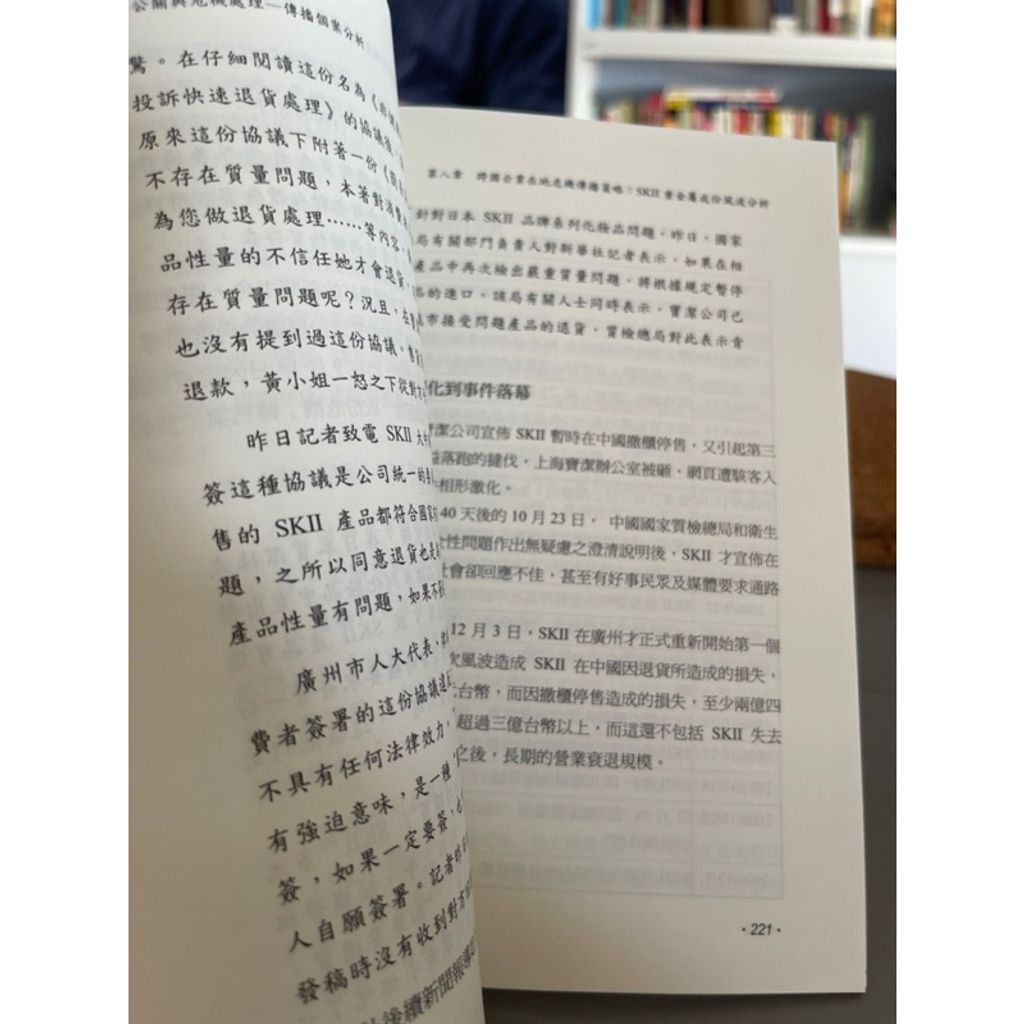 公關與危機處理—傳播個案分析
驚。在仔細閱讀這份名為《
投訴快速退貨處理》的協議後,
原來這份協議下附著一份《
不存在質量問題,本著對消
為您做退貨處理……等內容,
品性量的不信任她才會退貨,
存在質量問題呢?況且,在
也沒有提到過這份協議。
退款,黃小姐一怒之下從對方
昨日記者致電 SKII 大中
簽這種協議是公司統一的
售的 SKII 產品都符合國家
題,之所以同意退貨也是
產品性量有問題,如果不
廣州市人大代表、
費者簽署的這份協議違反
不具有任何法律效力,
有強迫意味,是一種
簽,如果一定要簽,也
人自願簽署。記者昨日
發稿時沒有收到對方
後續新聞報導
第八章 跨國企業在地危機傳播策略:SKII 重金屬成份風波分析
針對日本 SKII 品牌系列化妝品問題,昨日,國家
局有關部門負責人對新華社記者表示,如果在相
產品中再次檢出嚴重質量問題,將根據規定暫停
的進口。該局有關人士同時表示,寶潔公司已
市接受問題產品的退貨,質檢總局對此表示肯
化到事件落幕
寶潔公司宣佈 SKII 暫時在中國撤櫃停售,又引起第三
落跑的撻伐,上海寶潔辦公室被砸、網頁遭駭客入
相形激化。
40 天後的 10 月 23 日, 中國國家質檢總局和衛生
全性問題作出無疑慮之澄清說明後,SKII 才宣佈在
社會卻回應不佳,甚至有好事民眾及媒體要求通路
12 月 3 日,SKII 在廣州才正式重新開始第一個
次風波造成 SKII 在中國因退貨所造成的損失,
台幣,而因撤櫃停售造成的損失,至少兩億四
超過三億台幣以上,而這還不包括 SKII 失去
之後,長期的營業衰退規模。
·221·